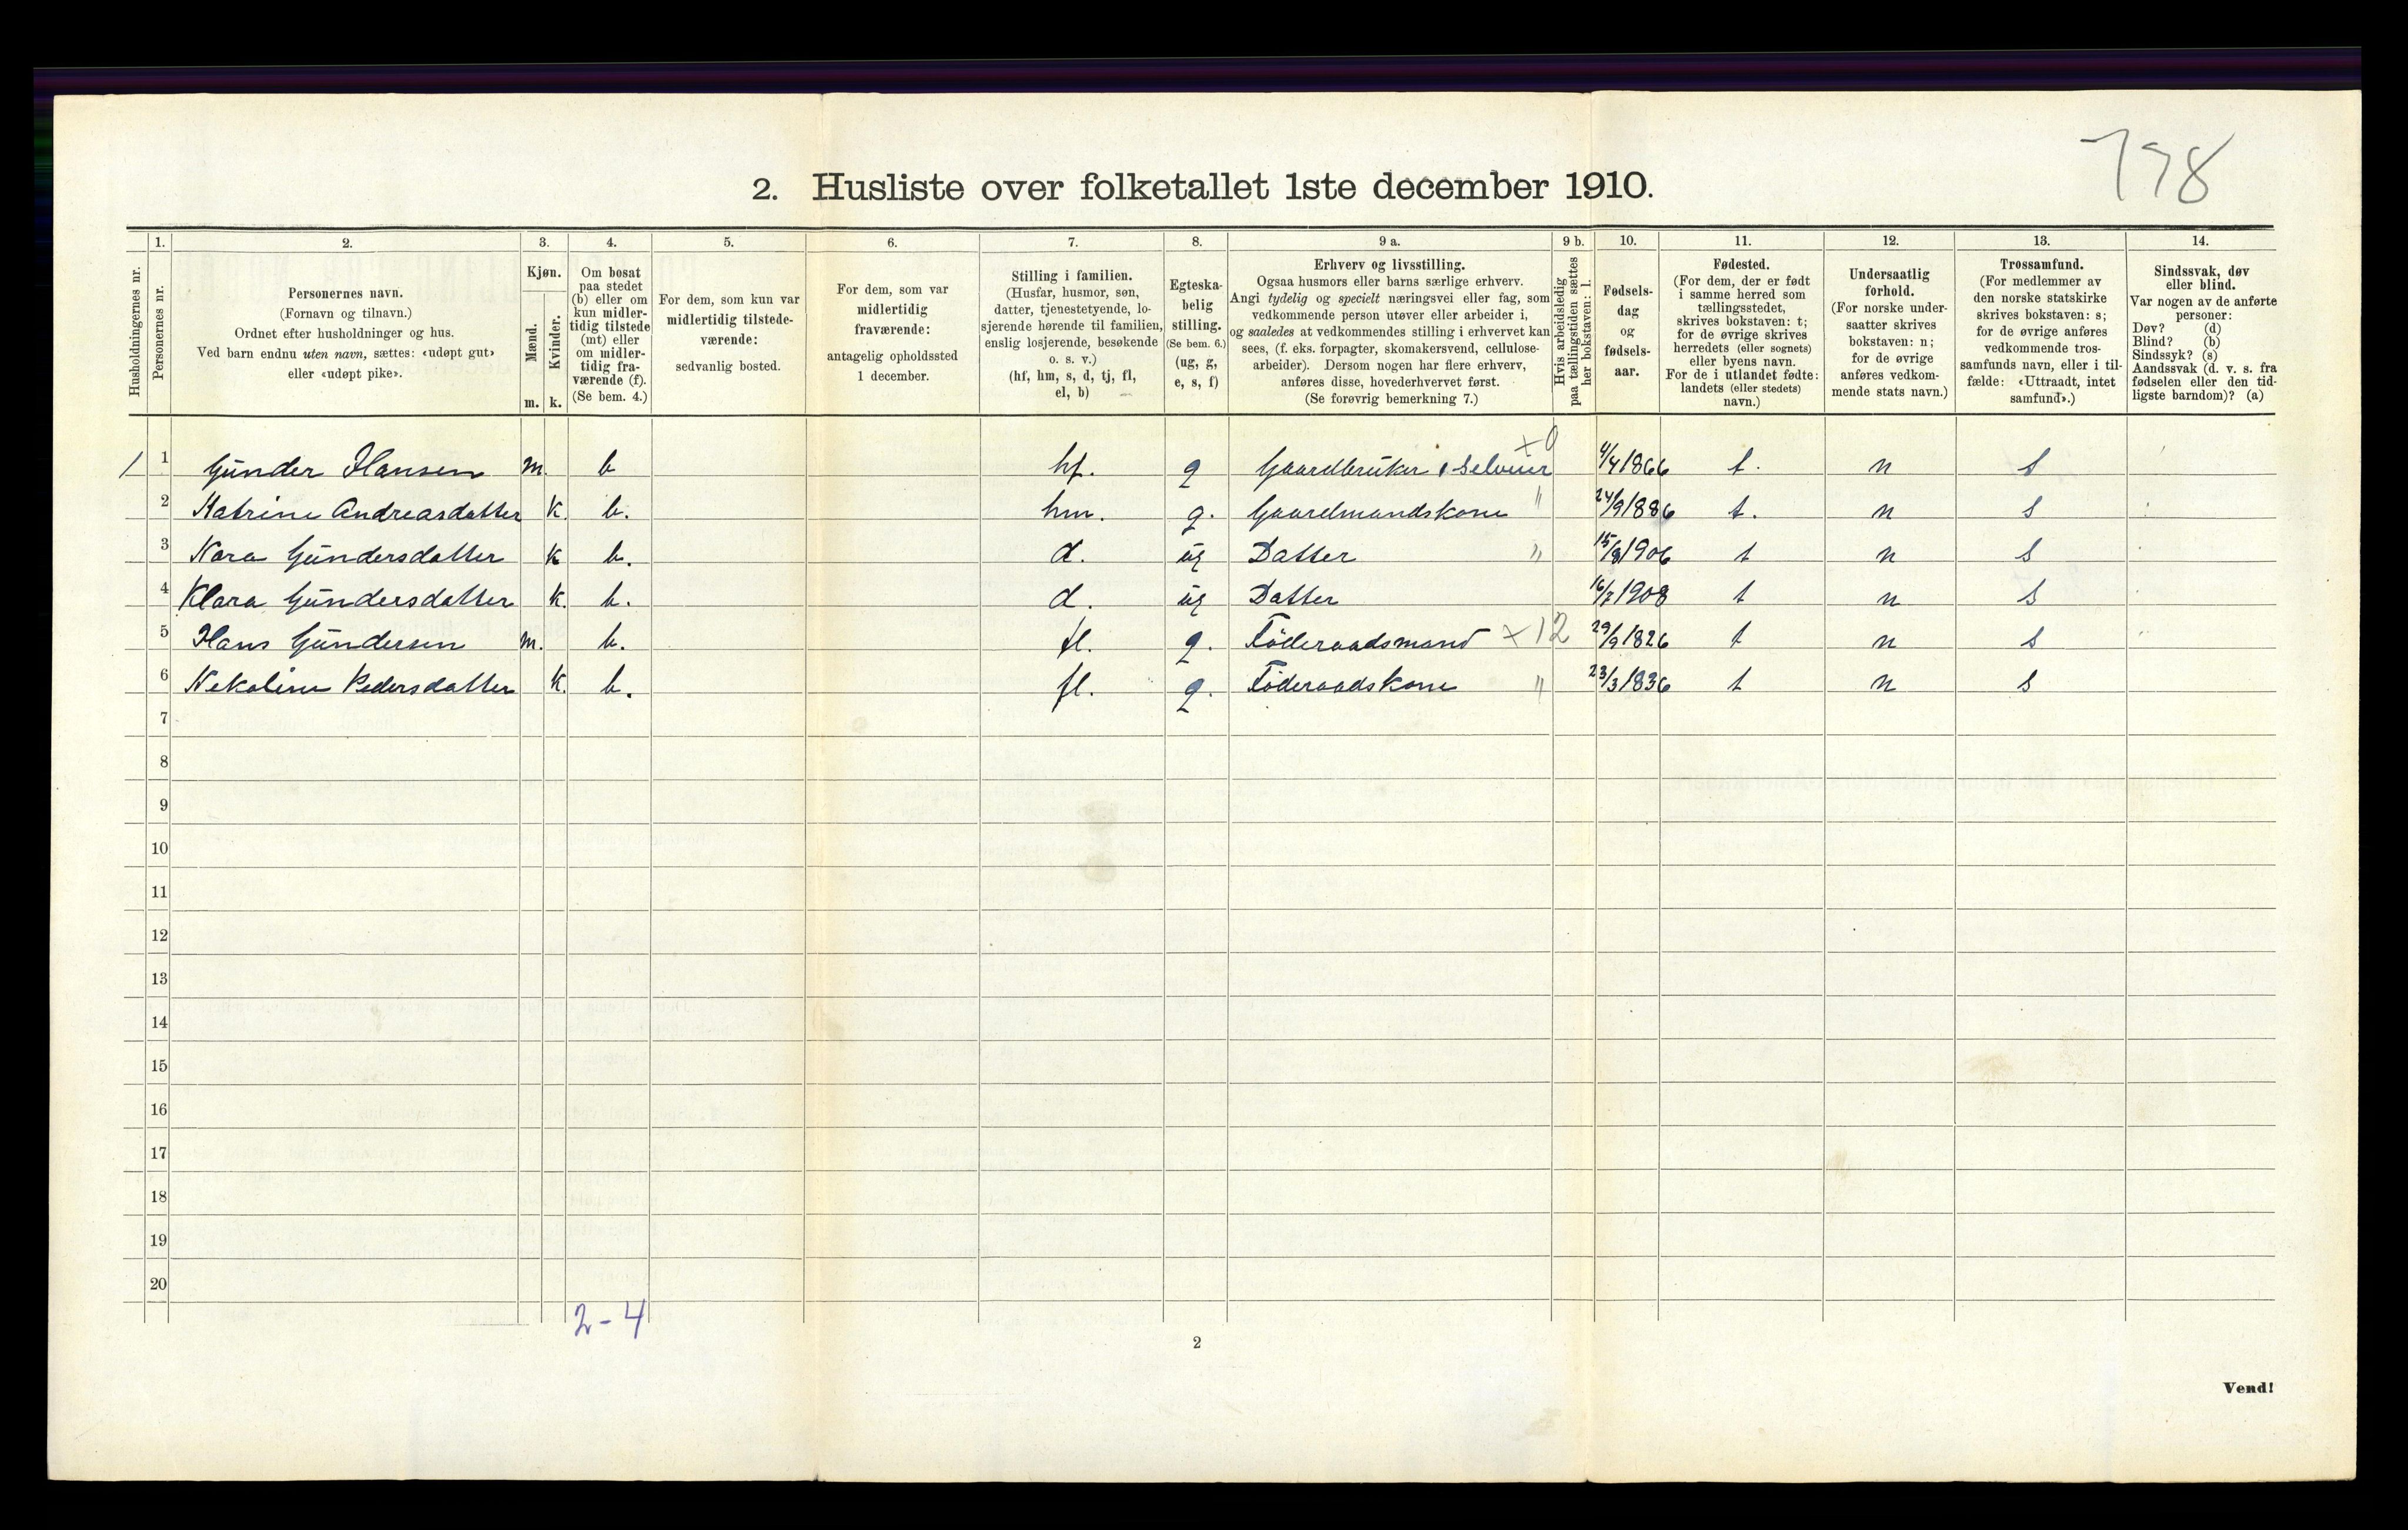 798
2. Husliste over folketallet 1ste december 1910.
Husholdningernes nr.
1.
Personernes nr.
2.
Personernes navn.
(Fornavn og tilnavn.)
Ordnet efter husholdninger og hus.
Ved barn endnu uten navn, sættes: «udøpt gut»
eller «udøpt pike».
3.
Kjøn.
Mænd.
Kvinder.
m. k.
4.
Om bosat
paa stedet
(b) eller om
kun midler-
tidig tilstede
(mt) eller
om midler-
tidig fra-
værende (f).
(Se bem. 4.)
5.
For dem, som kun var
midlertidig tilstede-
værende:
sedvanlig bosted.
6.
For dem, som var
midlertidig
fraværende:
antagelig opholdssted
1 december.
7.
Stilling i familien.
(Husfar, husmor, søn,
datter, tjenestetyende, lo-
sjerende hørende til familien,
enslig losjerende, besøkende
o. s. v.)
(hf, hm, s, d, tj, fl,
el, b)
8.
Egteska-
belig
stilling.
(Se bem. 6.)
(ug, g,
e, s, f)
9 a.
Erhverv og livsstilling.
Ogsaa husmors eller barns særlige erhverv.
Angi tydelig og specielt næringsvei eller fag, som
vedkommende person utøver eller arbeider i,
og saaledes at vedkommendes stilling i erhvervet kan
sees, (f. eks. forpagter, skomakersvend, cellulose-
arbeider). Dersom nogen har flere erhverv,
anføres disse, hovederhvervet først.
(Se forøvrig bemerkning 7.)
9 b.
Hvis arbeidsledig
paa tællingstiden sættes
her bokstaven: l.
10.
Fødsels-
dag
og
fødsels-
aar.
11.
Fødested.
(For dem, der er født
i samme herred som
tællingsstedet,
skrives bokstaven: t;
for de øvrige skrives
herredets (eller sognets)
eller byens navn.
For de i utlandet fødte:
landets (eller stedets)
navn.)
12.
Undersaatlig
forhold.
(For norske under-
saatter skrives
bokstaven: n;
for de øvrige
anføres vedkom-
mende stats navn.)
13.
Trossamfund.
(For medlemmer av
den norske statskirke
skrives bokstaven: s;
for de øvrige anføres
vedkommende tros-
samfunds navn, eller i til-
fælde: «Uttraadt, intet
samfund».)
14.
Sindssvak, døv
eller blind.
Var nogen av de anførte
personer:
Døv? (d)
Blind? (b)
Sindssyk? (s)
Aandssvak (d. v. s. fra
fødselen eller den tid-
ligste barndom)? (a)
1 1 Gunder Hansen m. b hf. g Gaardbruker, Selveier x0 4/4 1866 t. n s
2 Katrine Andreasdatter k. b. hm. g. Gaardmandskone " 24/9 1886 t. n s
3 Kara Gundersdatter k b. d. ug Datter " 15/8 1906 t n s
4 Klara Gundersdatter k. b. d. ug Datter 16/7 1908 t n s
5 Hans Gundersen m. b. fl. g. Föderaadsmand x12 29/9 1826 t n s
6 Nekoline Pedersdatter k. b. fl. g. Föderaadskone " 23/3 1836 t n s
7
8
9
10
11
12
13
14
15
16
17
18
19
20
2-4
2
Vend!